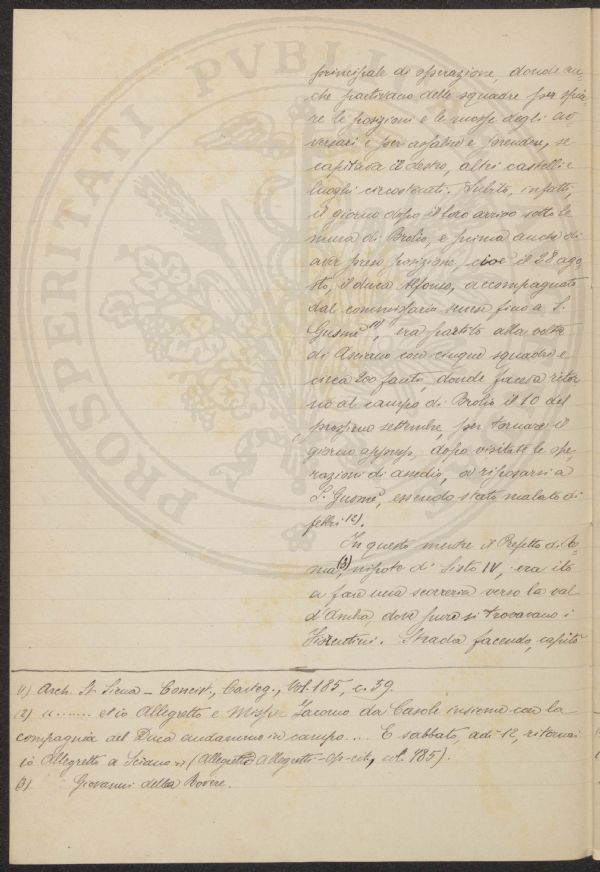 principale di operazione, donde an-
che partivano delle squadre per spia-
re le posizioni e le mosse degli av
versari e per assalire e prendere, se
capitava il destro, altri castelli e
luoghi circostanti. Subito, infatti,
il giorno dopo il loro arrivo sotto le
mura di Brolio, e prima anche di
aver preso posizione, cioè il 28 ago-
sto, il duca Alfonso, accompagnato
dal commissario senese fino a S.
Gusmè (1), era partito alla volta
di Asciano con cinque squadre e
circa 200 fanti, donde faceva ritor
no al campo di Brolio il 10 del
prossimo settembre, per tornare il
giorno appresso, dopo visitate le ope-
razioni di assedio, a riposarsi a
S. Gusmè, essendo stato malato di
febbri (2).
In questo mentre il Prefetto di Ro-
ma (3), nipote di Sisto IV, era ito
a fare una scorreria verso la val
d'Ambra, dove pure si trovavano i
Fiorentini. Strada facendo, capitò
(1) Arch. St. Siena - Concist., Carteg., Vol. 185, c. 39.
(2) «........ et io Allegretto e Misser Jacomo da Casole insieme con la
compagnia del Duca andammo in campo.... E sabbato, adì 12, ritornai
io Allegretto a Sciano» (Allegretto Allegretti - Op. cit., col. 785).
(3) Giovanni della Rovere.
PROSPERITATI PVBLI